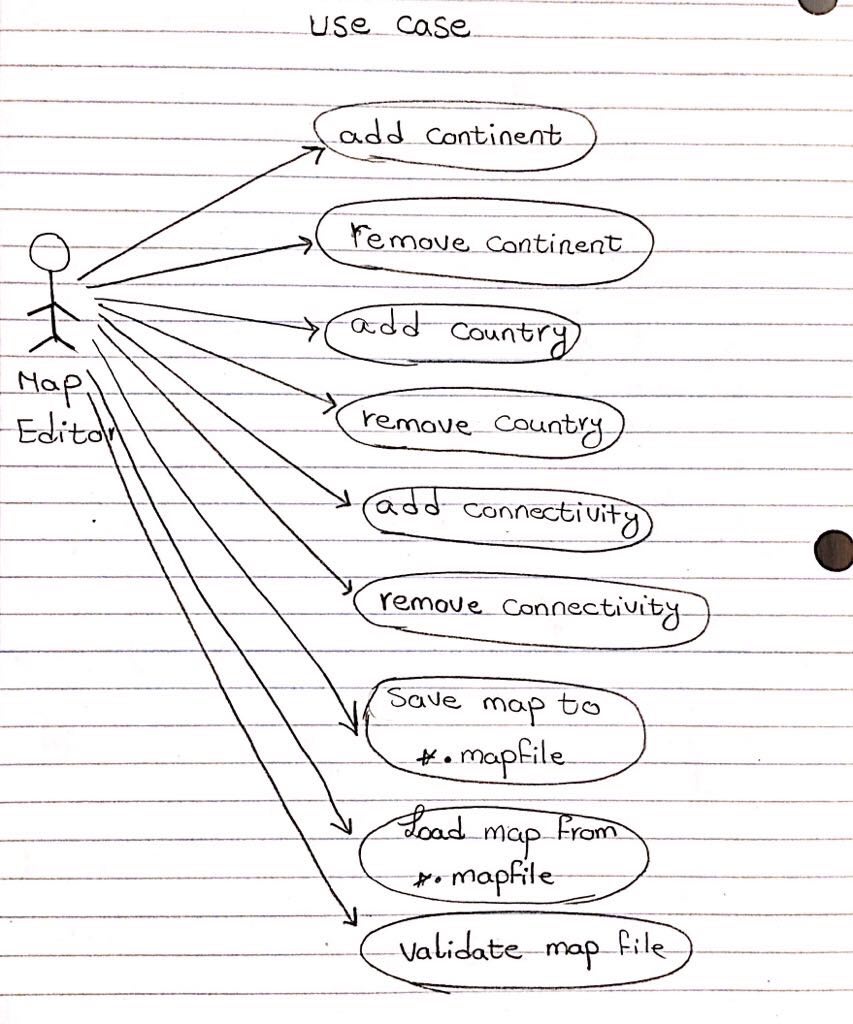 use case
add continent
remove continent
add country
Map
Editor
remove country
add connectivity
remove connectivity
Save map to
*.mapfile
Load map from
*.mapfile
validate map file